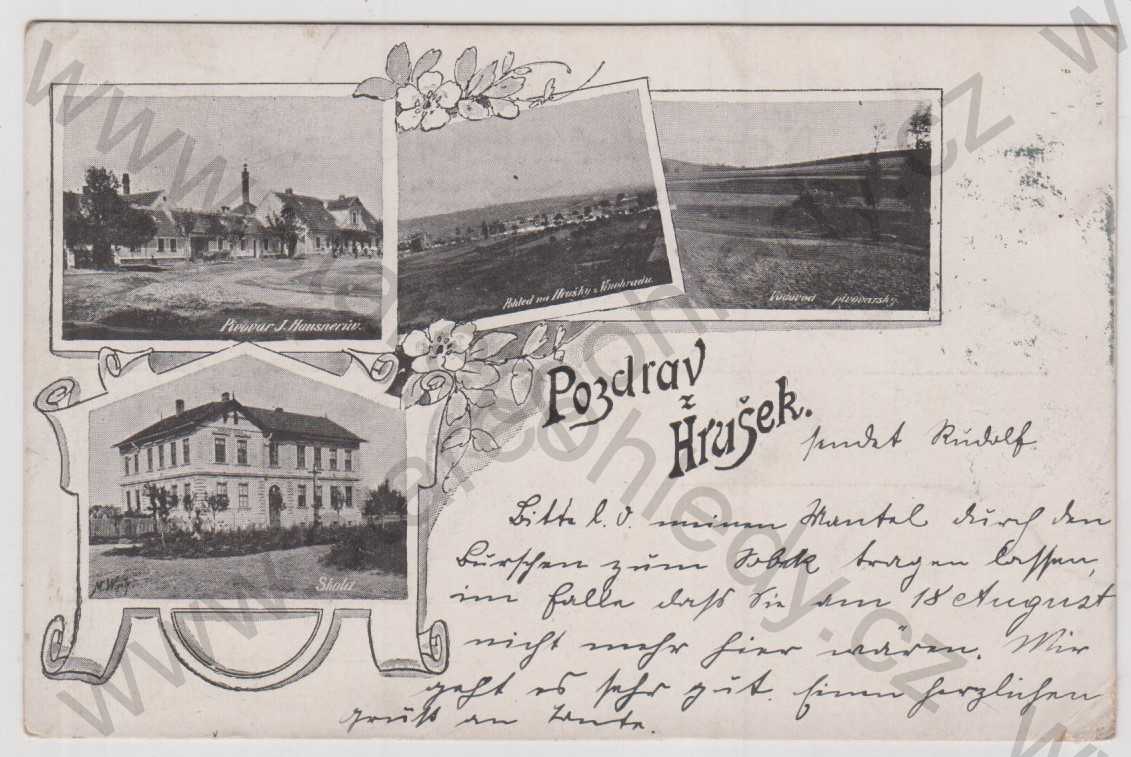 Pivovar J. Hausnerův.
Pohled na Hrušky z Vinohradu.
Vodovod pivovarský.
Škola
Pozdrav
z
Hrušek.
sendet Rudolf
Bitte l. O. meinen Mantel durch den
Burschen zum tragen lassen,
im Falle daß Sie am 18 August
nicht mehr hier wären. Mir
geht es sehr gut. Einen herzlichen
Gruß an Tante.
www.stare-pohledy.cz